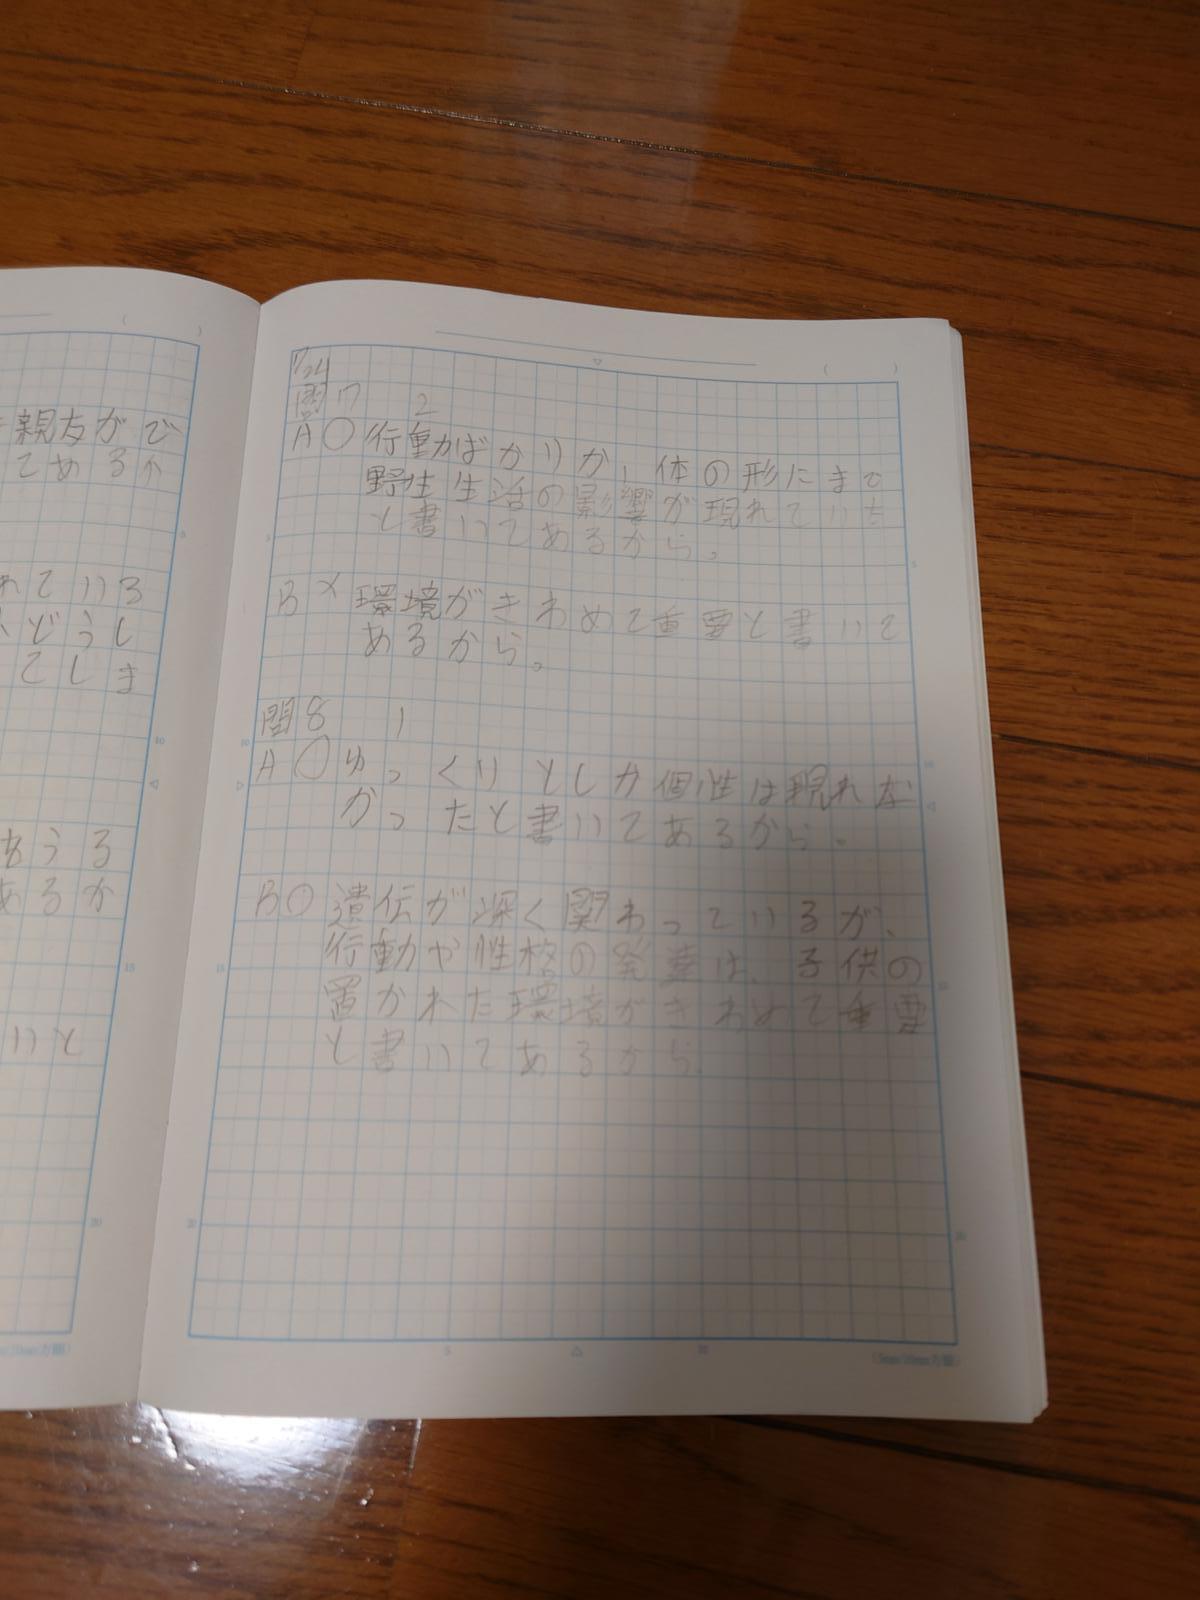 親友がで
てあるか
れている
いどうし
てしま
あうる
あるか
いと
7/24
問7 2
A○行動ばかりか、体の形にまで
野生生活の影響が現れていた
と書いてあるから。
B×環境がきわめて重要と書いて
あるから。
問8 1
A○ゆっくりとしか個性は現れな
かったと書いてあるから。
B○遺伝が深く関わっているが、
行動や性格の発達は、子供の
置かれた環境がきわめて重要
と書いてあるから.